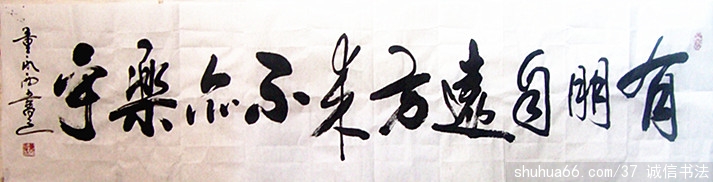 有朋自遠方来不亦樂乎
shuhua66.com/37 诚信书法